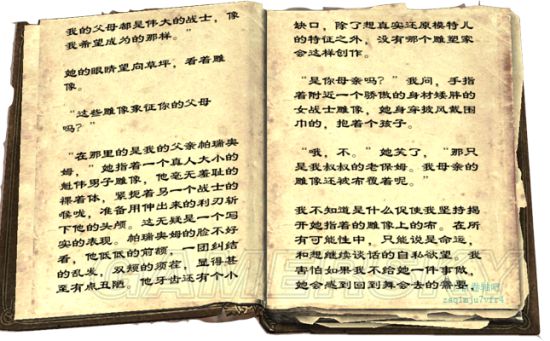 我的父母都是伟大的战士，像
我希望成为的那样。”
她的眼睛望向草坪，看着雕
像。
“这些雕像象征你的父母
吗？”
“在那里的是我的父亲帕瑞奥
姆，”她指着一个真人大小的
魁伟男子雕像，他毫无羞耻的
裸着体，紧扼着另一个战士的
喉咙，准备用伸出来的利刃斩
下他的头颅。这无疑是一个写
实的表现。帕瑞奥姆的脸不好
看，他低低的前额，一团纠结
的乱发，双颊的须茬，显得甚
至有点丑陋。他牙齿还有个小
缺口，除了想真实还原模特儿
的特征之外，没有哪个雕塑家
会这样创作。
“是你母亲吗？”我问，手指
着附近一个骄傲的身材矮胖的
女战士雕像，她身穿披风戴围
巾的，抱着个孩子。
“哦，不。”她笑了，“那只
是我叔叔的老保姆。我母亲的
雕像还被布覆着呢。”
我不知道是什么促使我坚持揭
开她指着的雕像上的布。在所
有可能性中，只能说是命运，
和想继续谈话的自私欲望。我
害怕如果我不给她一件事做，
她会感到回到舞会去的需要，
GAMERSKY
zsqlmju7vfr4